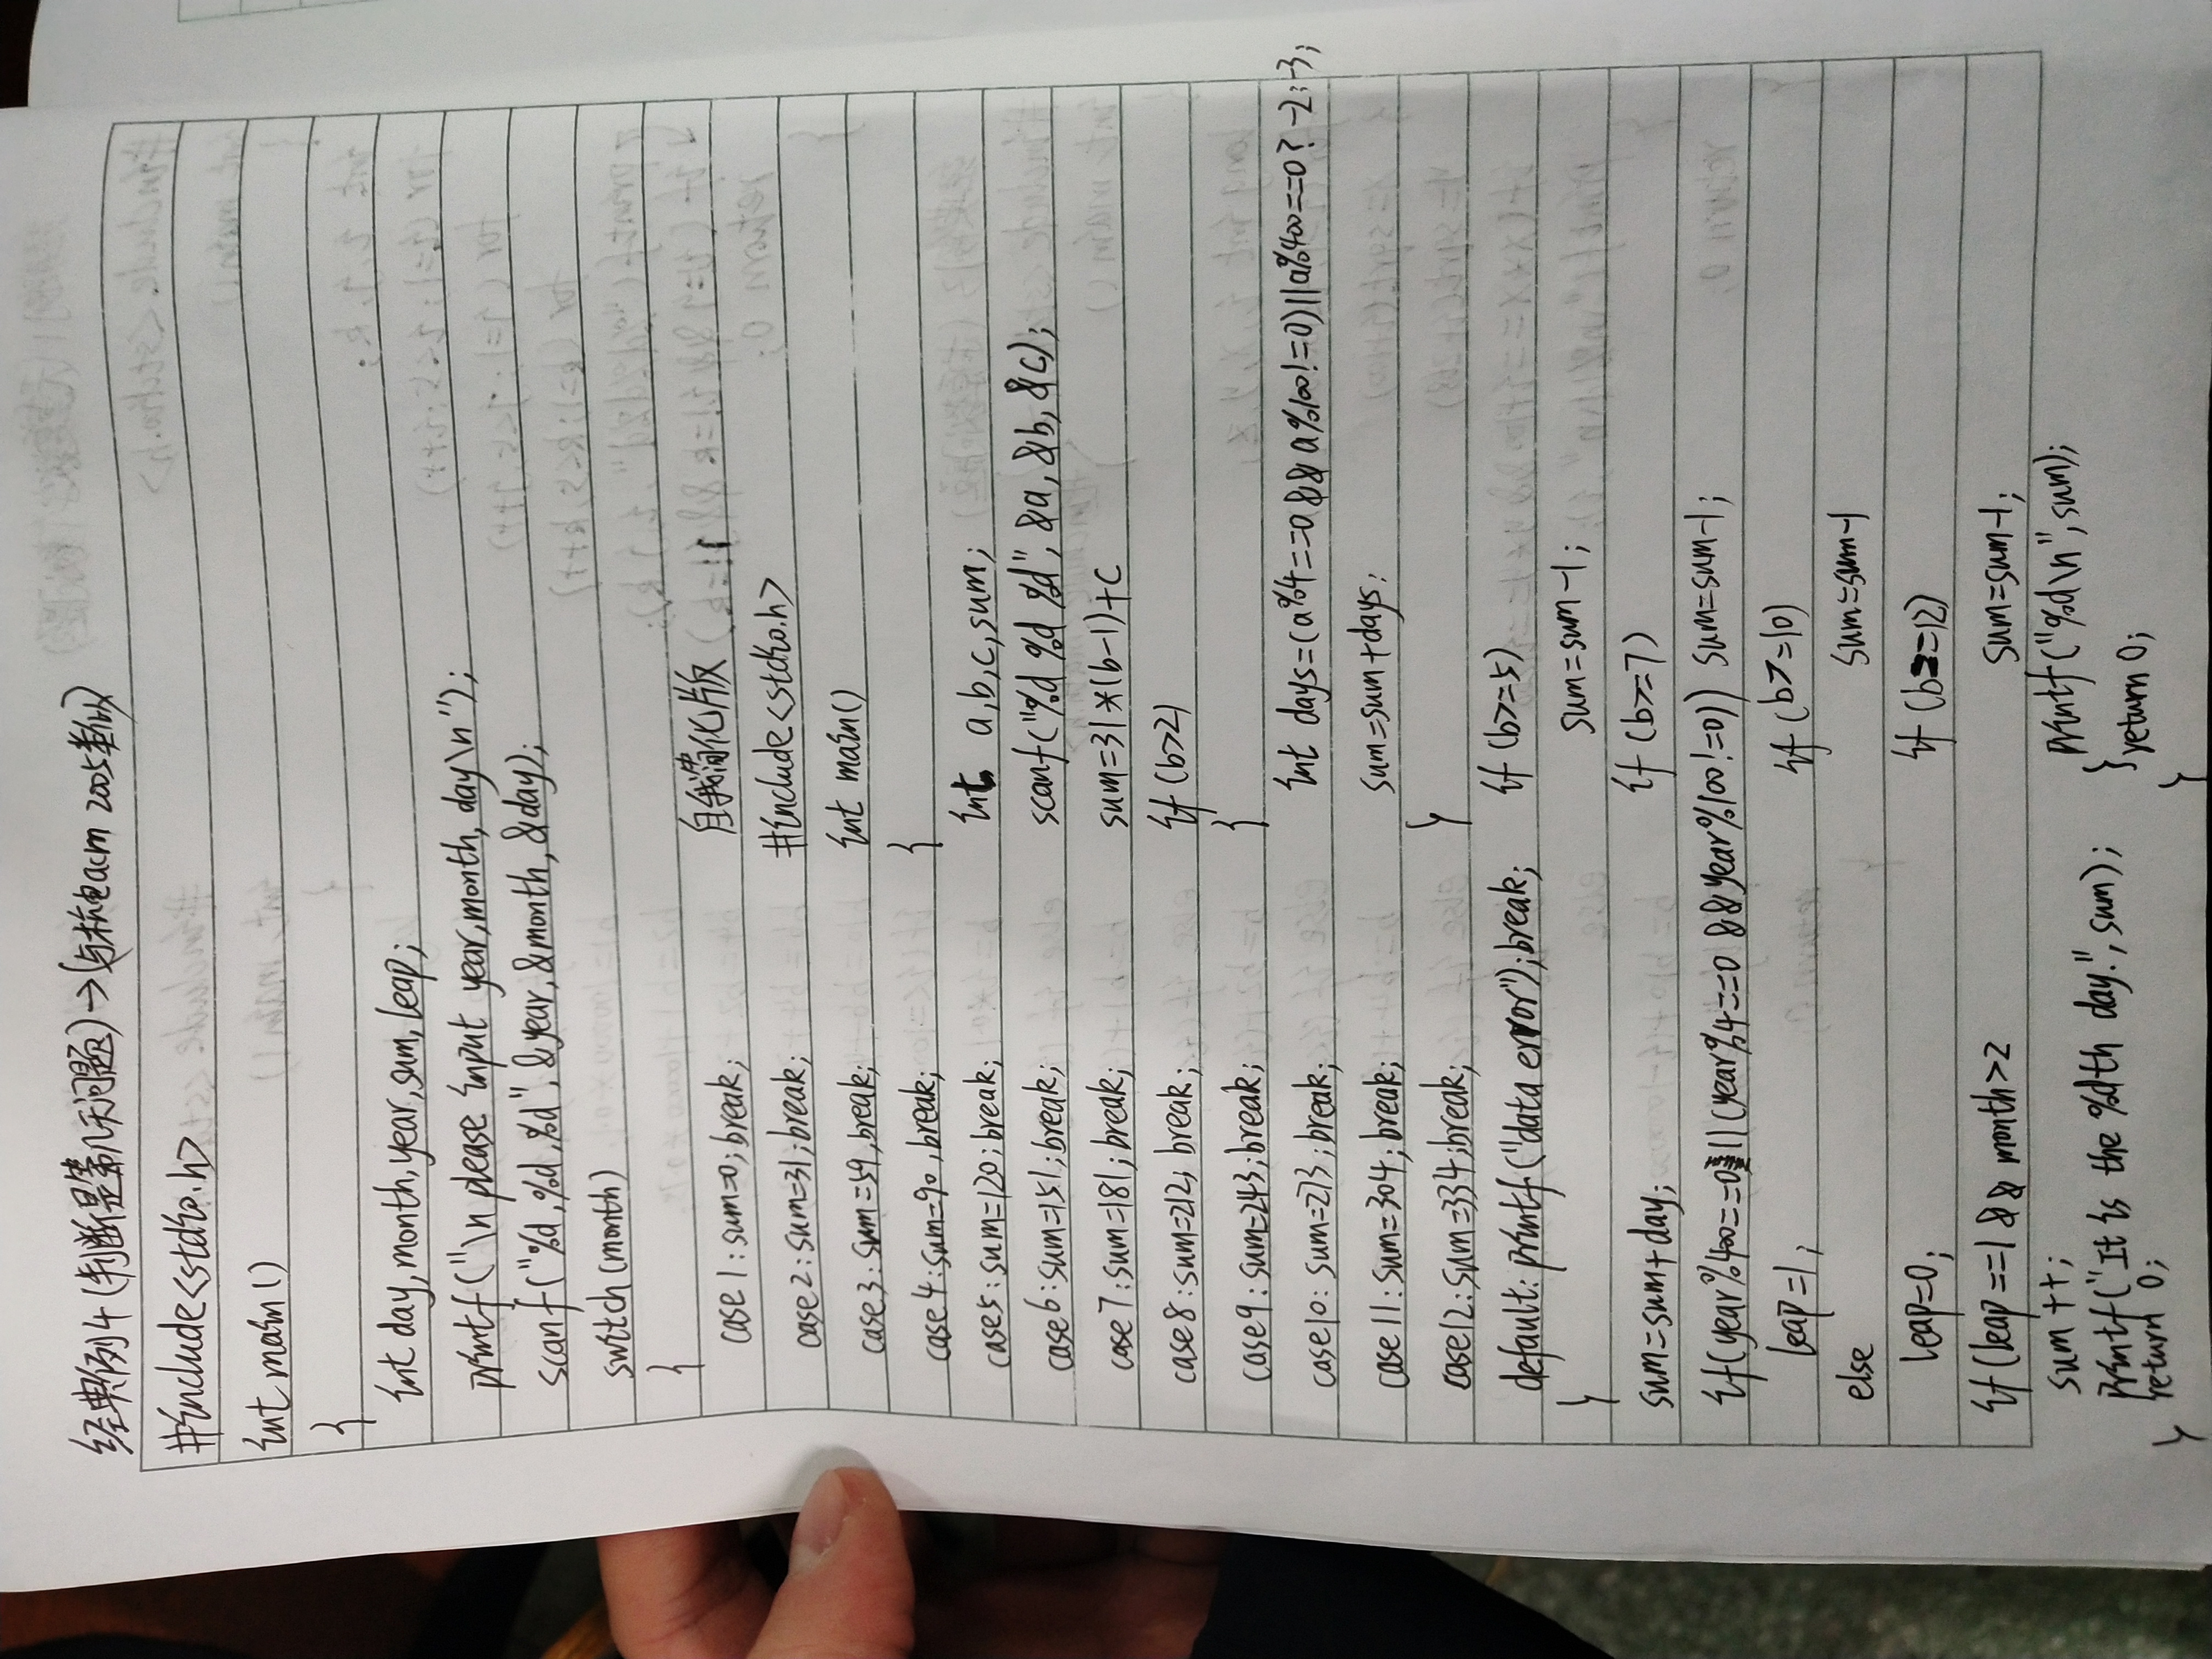 经典例4(判断是第几天问题)→(与杭电acm 2005类似)
#include<stdio.h>
int main()
{
int day,month,year,sum,leap;
printf("\n please input year,month,day\n");
scanf("%d,%d,%d",&year,&month,&day);
switch(month)
{
case 1:sum=0;break;
case 2:sum=31;break;
case 3:sum=59;break;
case 4:sum=90;break;
case 5:sum=120;break;
case 6:sum=151;break;
case 7:sum=181;break;
case 8:sum=212;break;
case 9:sum=243;break;
case 10:sum=273;break;
case 11:sum=304;break;
case 12:sum=334;break;
default:printf("data error");break;
}
sum=sum+day;
if(year%400==0||(year%4==0&&year%100!=0))
leap=1;
else
leap=0;
if(leap==1&&month>2
sum++;
printf("It is the %dth day.",sum);
return 0;
}
自我简化版
#include<stdio.h>
int main()
{
int a,b,c,sum;
scanf("%d %d %d",&a,&b,&c);
sum=31*(b-1)+c
if(b>2)
{
int days=(a%4==0&&a%100!=0)||a%400==0?-2:-3;
sum=sum+days;
}
if(b>=5)
sum=sum-1;
if(b>=7)
sum=sum-1;
if(b>=10)
sum=sum-1
if(b==12)
sum=sum-1;
printf("%d\n",sum);
} return 0;
}